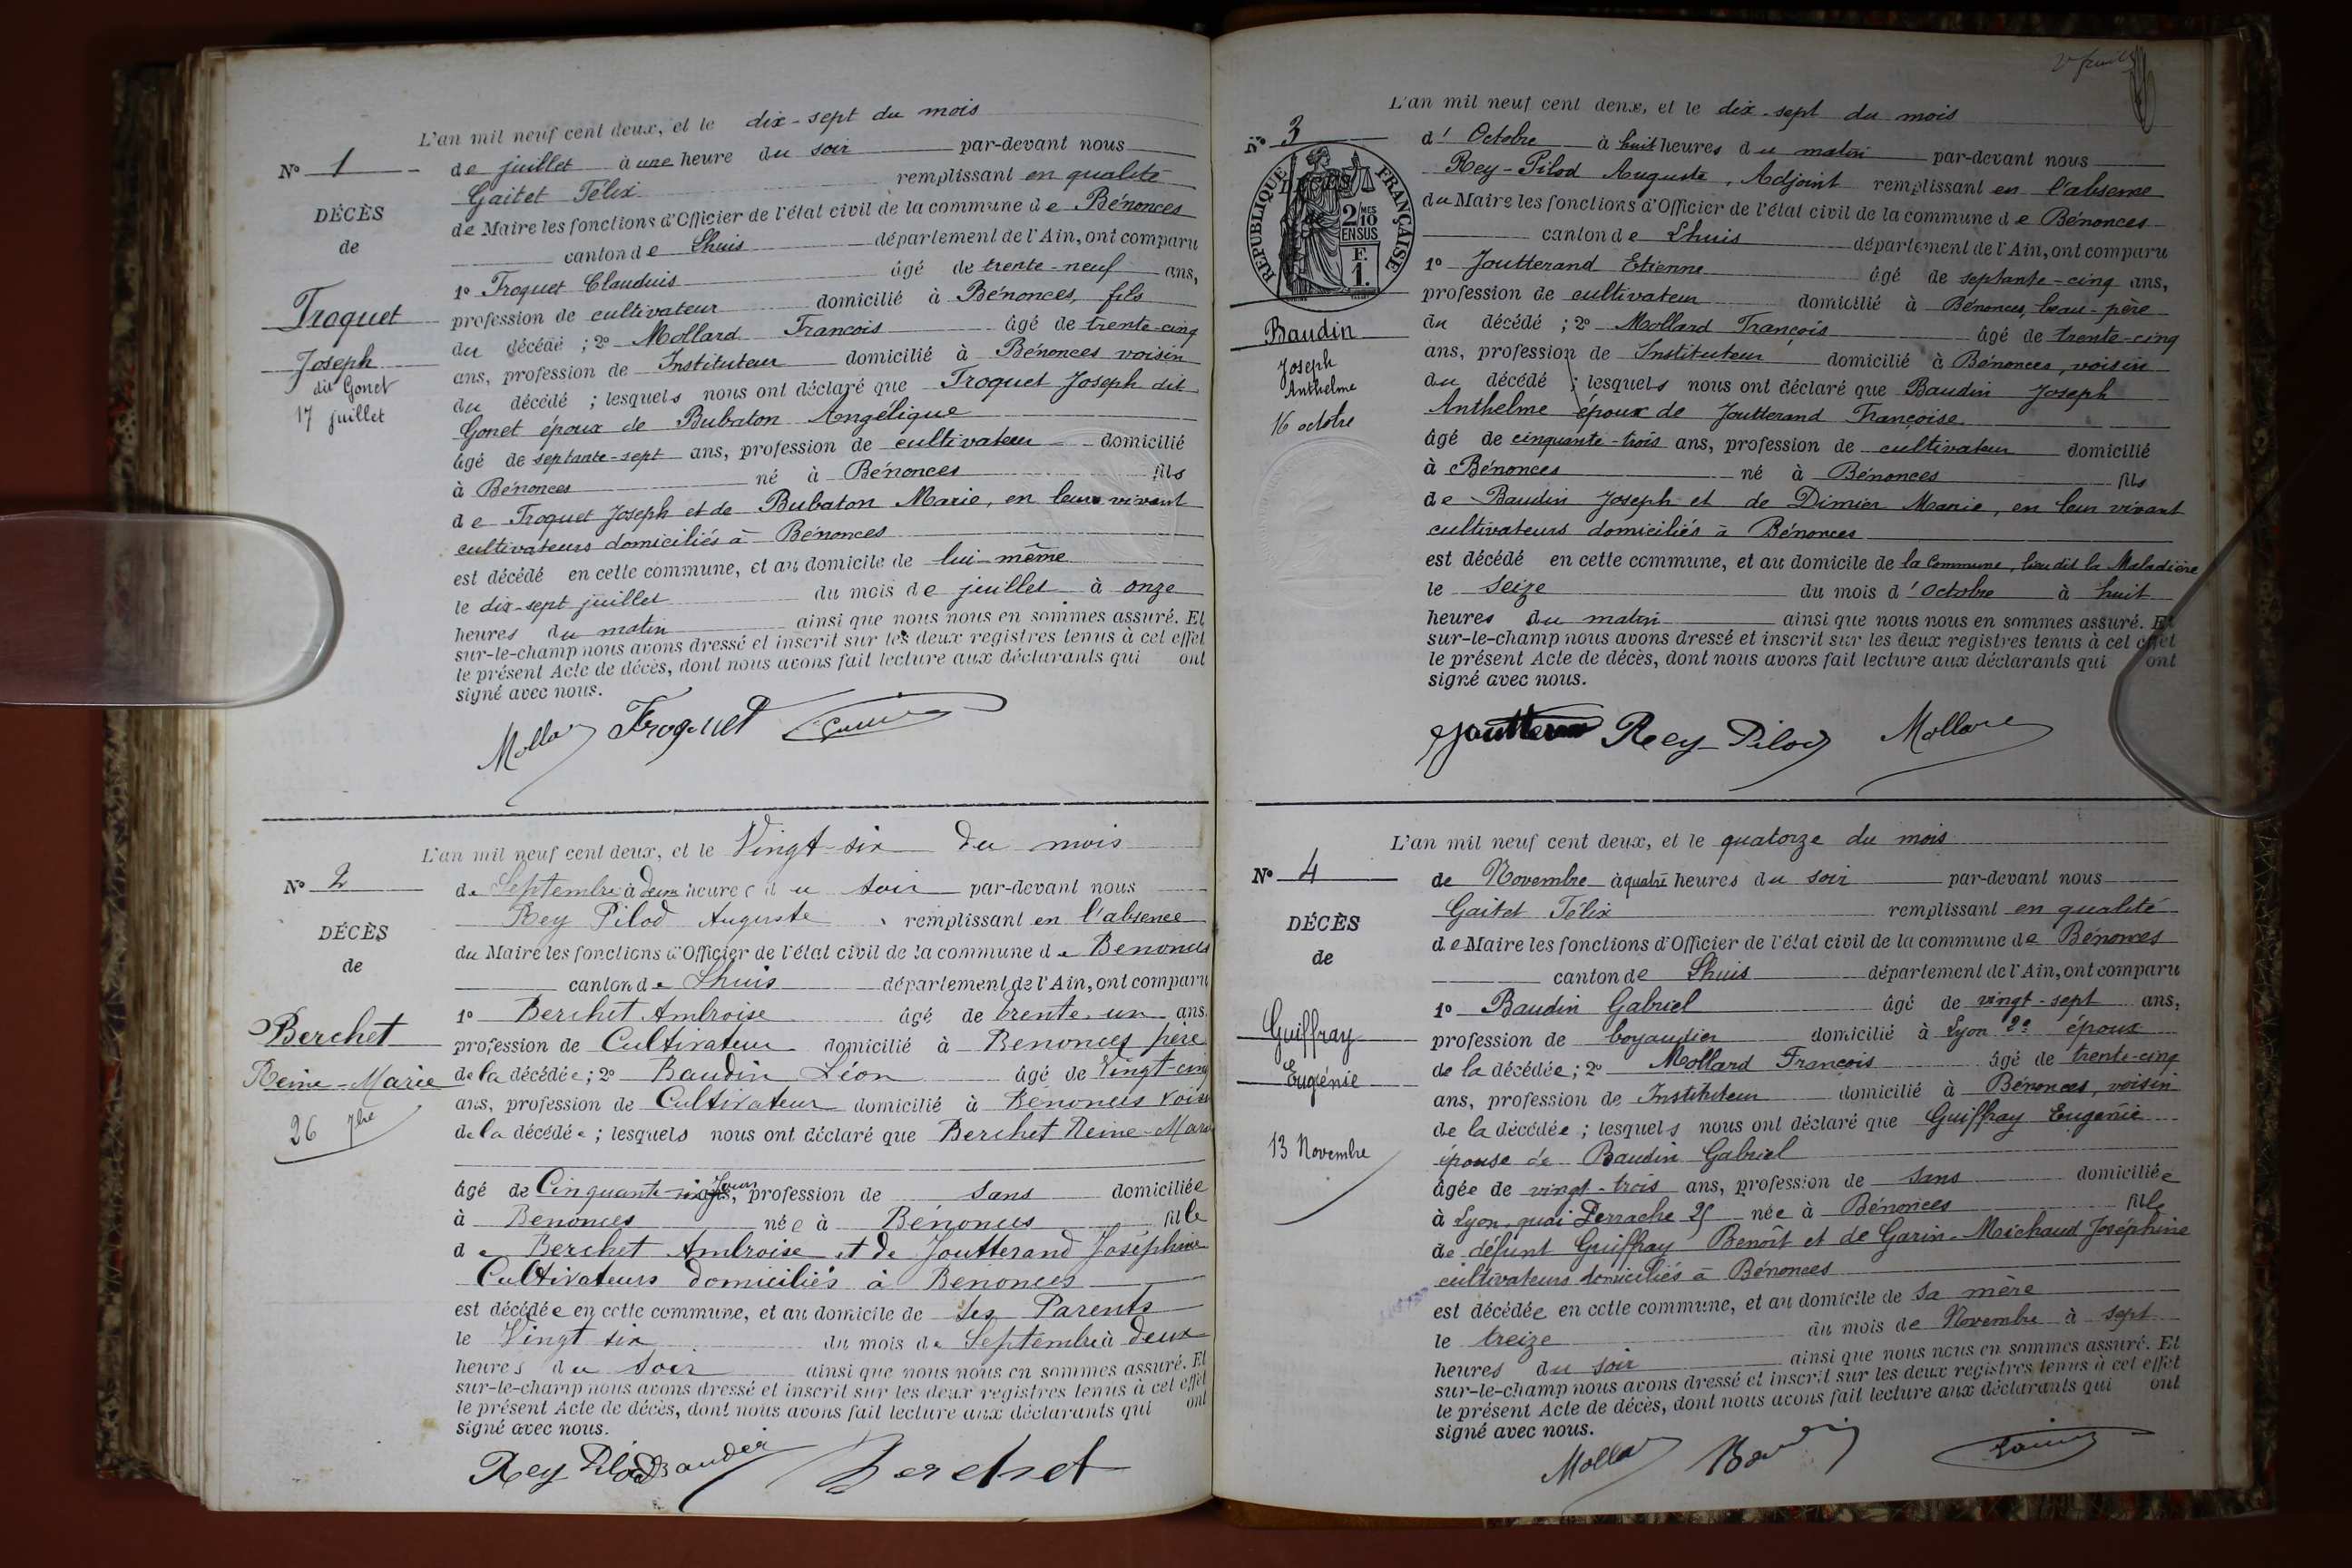 L'an mil neuf cent deux, et le dix-sept du mois
N° 1
de juillet à une heure du soir par-devant nous
Gaitet Félix remplissant en qualité
DÉCÈS
de Maire les fonctions d'Officier de l'état civil de la commune de Bénonces
de
canton de Lhuis département de l'Ain, ont comparu
1° Troquet Claudius âgé de trente-neuf ans,
Troquet
profession de cultivateur domicilié à Bénonces, fils
du décédé ; 2° Mollard François âgé de trente-cinq
Joseph
ans, profession de Instituteur domicilié à Bénonces voisin
dit Gonet
du décédé ; lesquels nous ont déclaré que Troquet Joseph dit
17 juillet
Gonet époux de Bubaton Angélique
âgé de septante-sept ans, profession de cultivateur domicilié
à Bénonces né à Bénonces fils
de Troquet Joseph et de Bubaton Marie, en leur vivant
cultivateurs domiciliés à Bénonces
est décédé en cette commune, et au domicile de lui-même
le dix-sept juillet du mois de juillet à onze
heures du matin ainsi que nous nous en sommes assuré. Et
sur-le-champ nous avons dressé et inscrit sur les deux registres tenus à cet effet
le présent Acte de décès, dont nous avons fait lecture aux déclarants qui ont
signé avec nous.
Mollard Troquet
L'an mil neuf cent deux, et le Vingt-six du mois
N° 2
de Septembre à deux heures du soir par-devant nous
Rey Pilod Auguste remplissant en l'absence
DÉCÈS
du Maire les fonctions d'Officier de l'état civil de la commune de Benonces
de
canton de Lhuis département de l'Ain, ont comparu
1° Berchet Ambroise âgé de trente-un ans,
Berchet
profession de Cultivateur domicilié à Benonces père
Reine-Marie
de la décédée ; 2° Baudin Léon âgé de Vingt-cinq
ans, profession de Cultivateur domicilié à Benonces voisin
26 7bre
de la décédée ; lesquels nous ont déclaré que Berchet Reine-Marie
âgé de Cinquante-six Jours, profession de sans domiciliée
à Benonces née à Benonces fille
de Berchet Ambroise et de Joutterand Joséphine
Cultivateurs domiciliés à Benonces
est décédée en cette commune, et au domicile de ses Parents
le Vingt six du mois de Septembre à deux
heures du soir ainsi que nous nous en sommes assuré. Et
sur-le-champ nous avons dressé et inscrit sur les deux registres tenus à cet effet
le présent Acte de décès, dont nous avons fait lecture aux déclarants qui ont
signé avec nous.
Rey Pilod Baudin Berchet
L'an mil neuf cent deux, et le dix-sept du mois
N° 3
d'Octobre à huit heures du matin par-devant nous
Rey-Pilod Auguste, Adjoint remplissant en l'absence
DÉCÈS
RÉPUBLIQUE FRANÇAISE
2/10MES
EN SUS
F.
1.
du Maire les fonctions d'Officier de l'état civil de la commune de Bénonces
canton de Lhuis département de l'Ain, ont comparu
1° Joutterand Etienne âgé de septante-cinq ans,
profession de cultivateur domicilié à Bénonces, beau-père
Baudin
du décédé ; 2° Mollard François âgé de trente-cinq
Joseph
ans, profession de Instituteur domicilié à Bénonces, voisin
Anthelme
du décédé ; lesquels nous ont déclaré que Baudin Joseph
16 octobre
Anthelme époux de Joutterand Françoise
âgé de cinquante-trois ans, profession de cultivateur domicilié
à Bénonces né à Bénonces fils
de Baudin Joseph et de Dimier Marie, en leur vivant
cultivateurs domiciliés à Bénonces
est décédé en cette commune, et au domicile de la Commune, lieu dit la Maladière
le seize du mois d'Octobre à huit
heures du matin ainsi que nous nous en sommes assuré. Et
sur-le-champ nous avons dressé et inscrit sur les deux registres tenus à cet effet
le présent Acte de décès, dont nous avons fait lecture aux déclarants qui ont
signé avec nous.
Joutterand Rey-Pilod Mollard
L'an mil neuf cent deux, et le quatorze du mois
N° 4
de Novembre à quatre heures du soir par-devant nous
Gaitet Félix remplissant en qualité
DÉCÈS
de Maire les fonctions d'Officier de l'état civil de la commune de Bénonces
de
canton de Lhuis département de l'Ain, ont comparu
1° Baudin Gabriel âgé de vingt-sept ans,
Guiffray
profession de boyaudier domicilié à Lyon 2e époux
de la décédée ; 2° Mollard François âgé de trente-cinq
Eugénie
ans, profession de Instituteur domicilié à Bénonces, voisin
de la décédée ; lesquels nous ont déclaré que Guiffray Eugénie
13 Novembre
épouse de Baudin Gabriel
âgée de vingt-trois ans, profession de sans domiciliée
à Lyon, quai Perrache 25 née à Bénonces fille
de défunt Guiffray Benoît et de Garin-Michaud Joséphine
cultivateurs domiciliés à Bénonces
est décédée en cette commune, et au domicile de sa mère
le treize du mois de Novembre à sept
heures du soir ainsi que nous nous en sommes assuré. Et
sur-le-champ nous avons dressé et inscrit sur les deux registres tenus à cet effet
le présent Acte de décès, dont nous avons fait lecture aux déclarants qui ont
signé avec nous.
Mollard Baudin